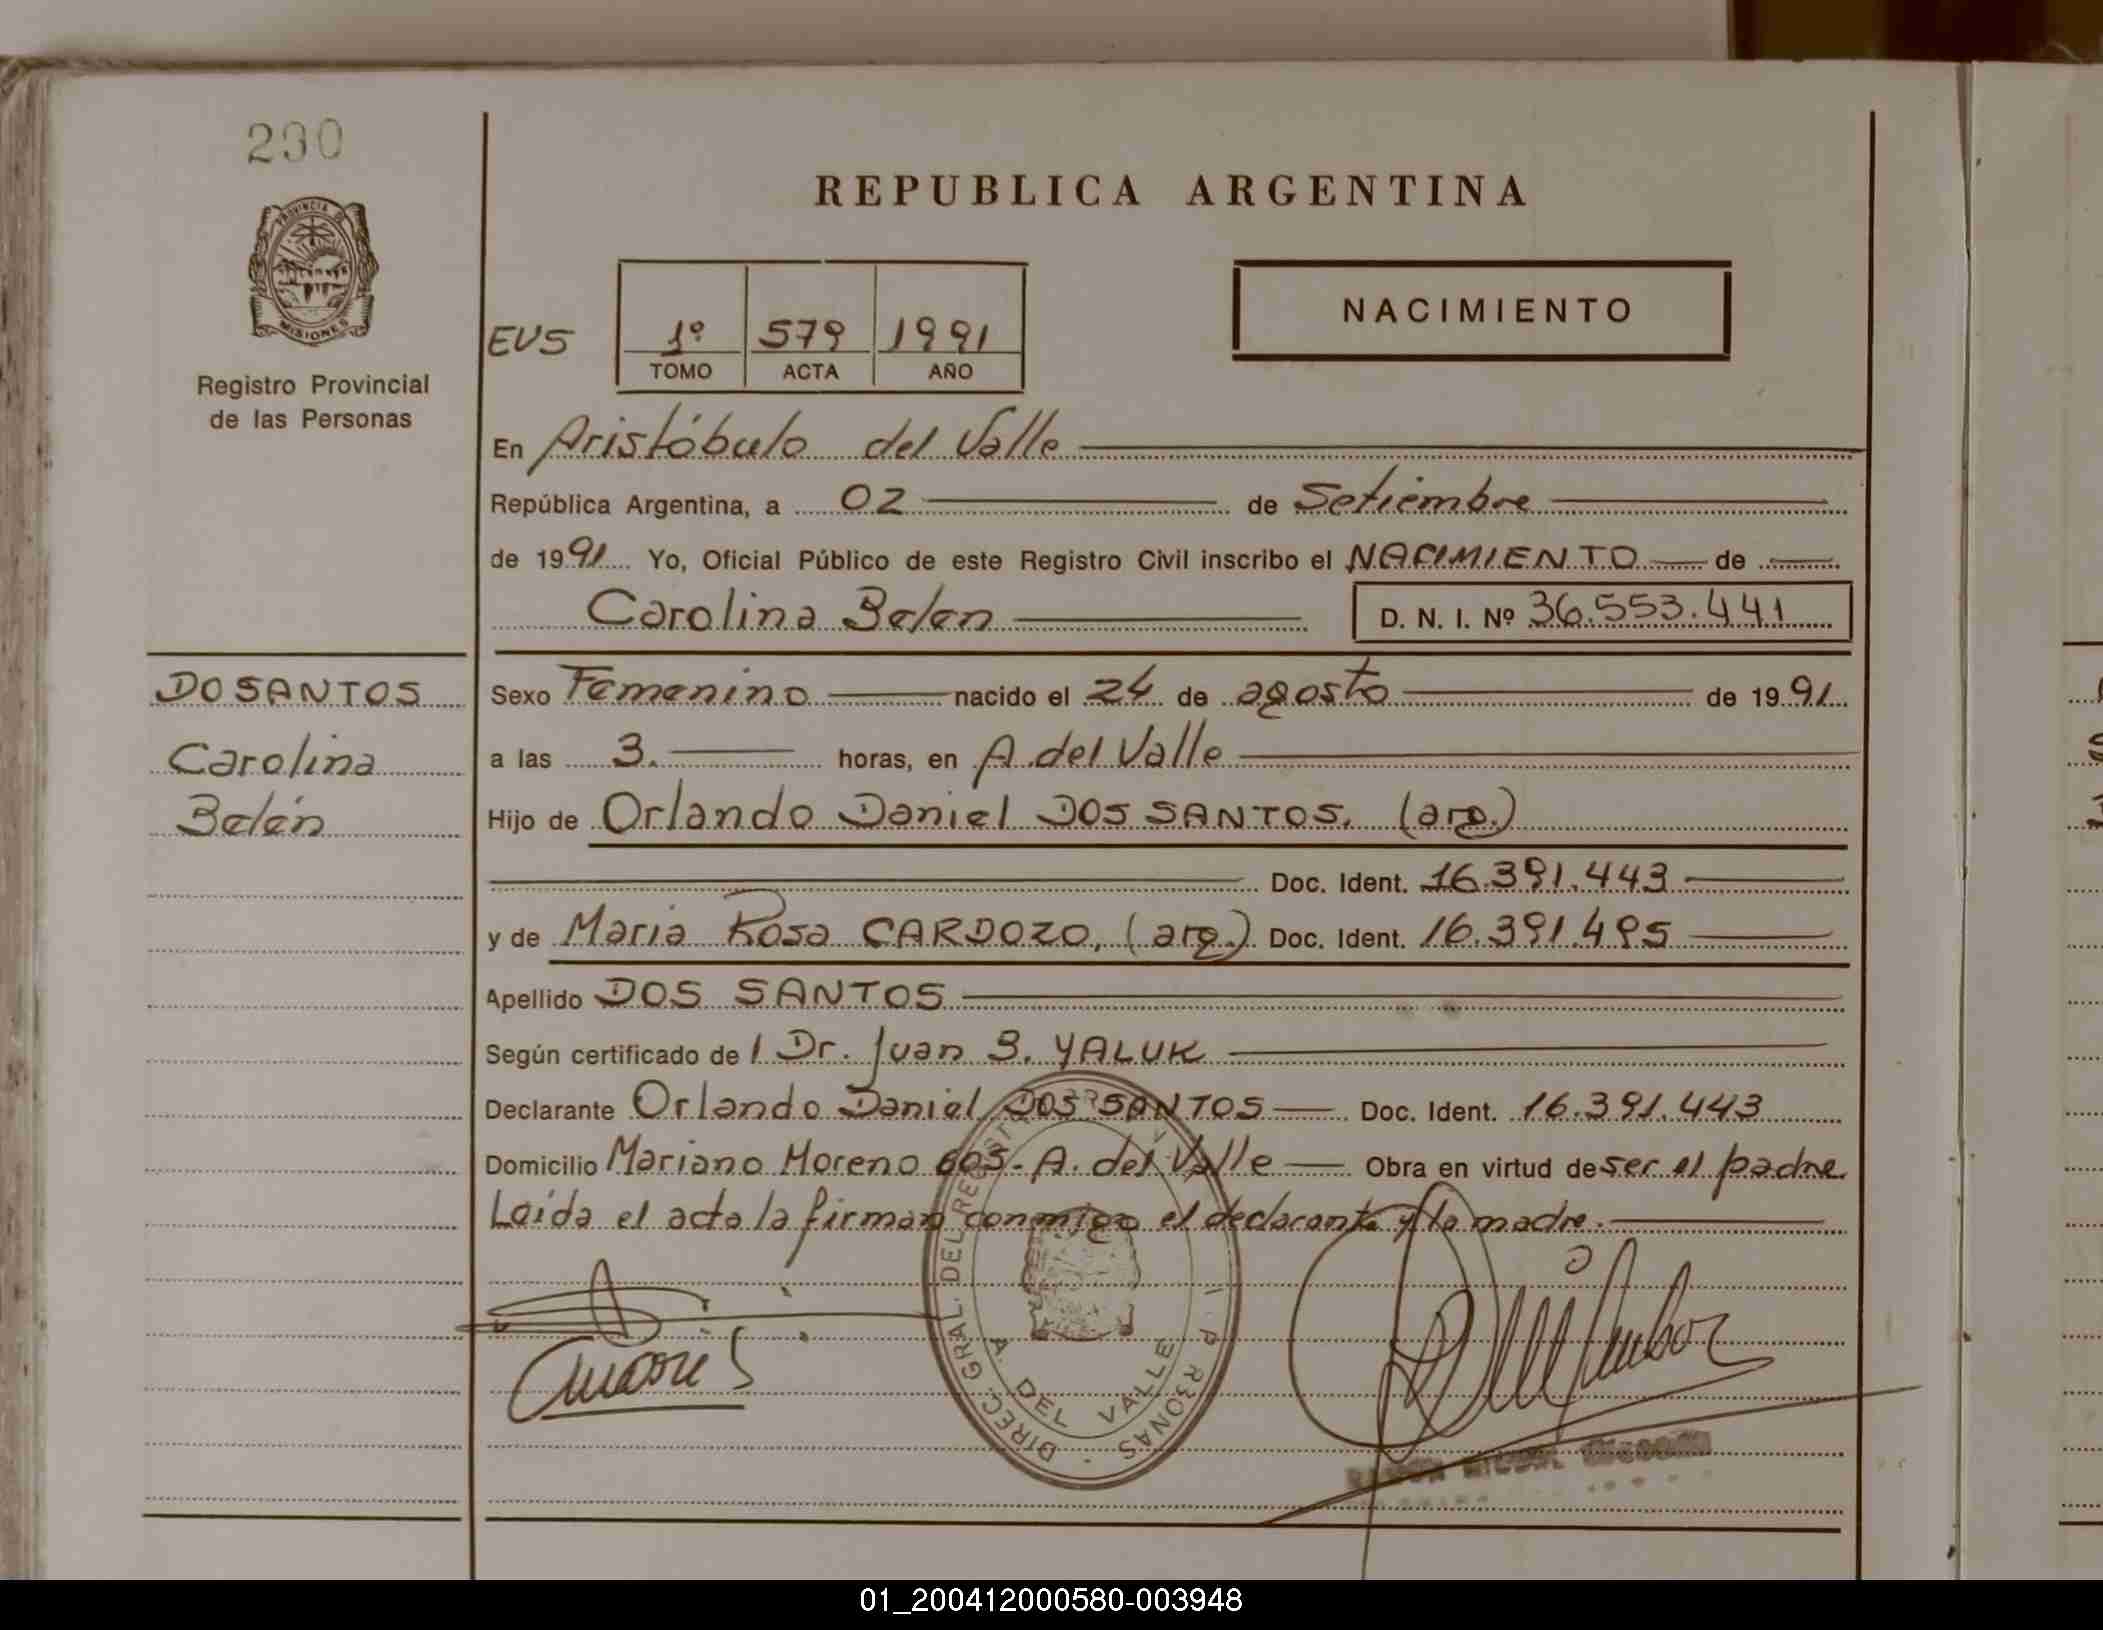 290
PROVINCIA DE
MISIONES
Registro Provincial
de las Personas
REPUBLICA ARGENTINA
NACIMIENTO
EVS
1º 579 1991
TOMO ACTA AÑO
En Aristóbulo del Valle
República Argentina, a 02 de Setiembre
de 1991 Yo, Oficial Público de este Registro Civil inscribo el NACIMIENTO de
Carolina Belen D. N. I. Nº 36.553.441
DOSANTOS
Carolina
Belén
Sexo Femenino nacido el 24 de agosto de 1991
a las 3. horas, en A del Valle
Hijo de Orlando Daniel DOS SANTOS, (arg.)
Doc. Ident. 16.391.443
y de Maria Rosa CARDOZO, (arg.) Doc. Ident. 16.391.495
Apellido DOS SANTOS
Según certificado de l Dr. Juan B. YALUK
Declarante Orlando Daniel DOS SANTOS Doc. Ident. 16.391.443
Domicilio Mariano Moreno 605- A. del Valle Obra en virtud de ser el padre
Leída el acta la firman conmigo el declarante y la madre.
DIREC. GRAL. DEL REGISTRO
A. DEL VALLE
01_200412000580-003948